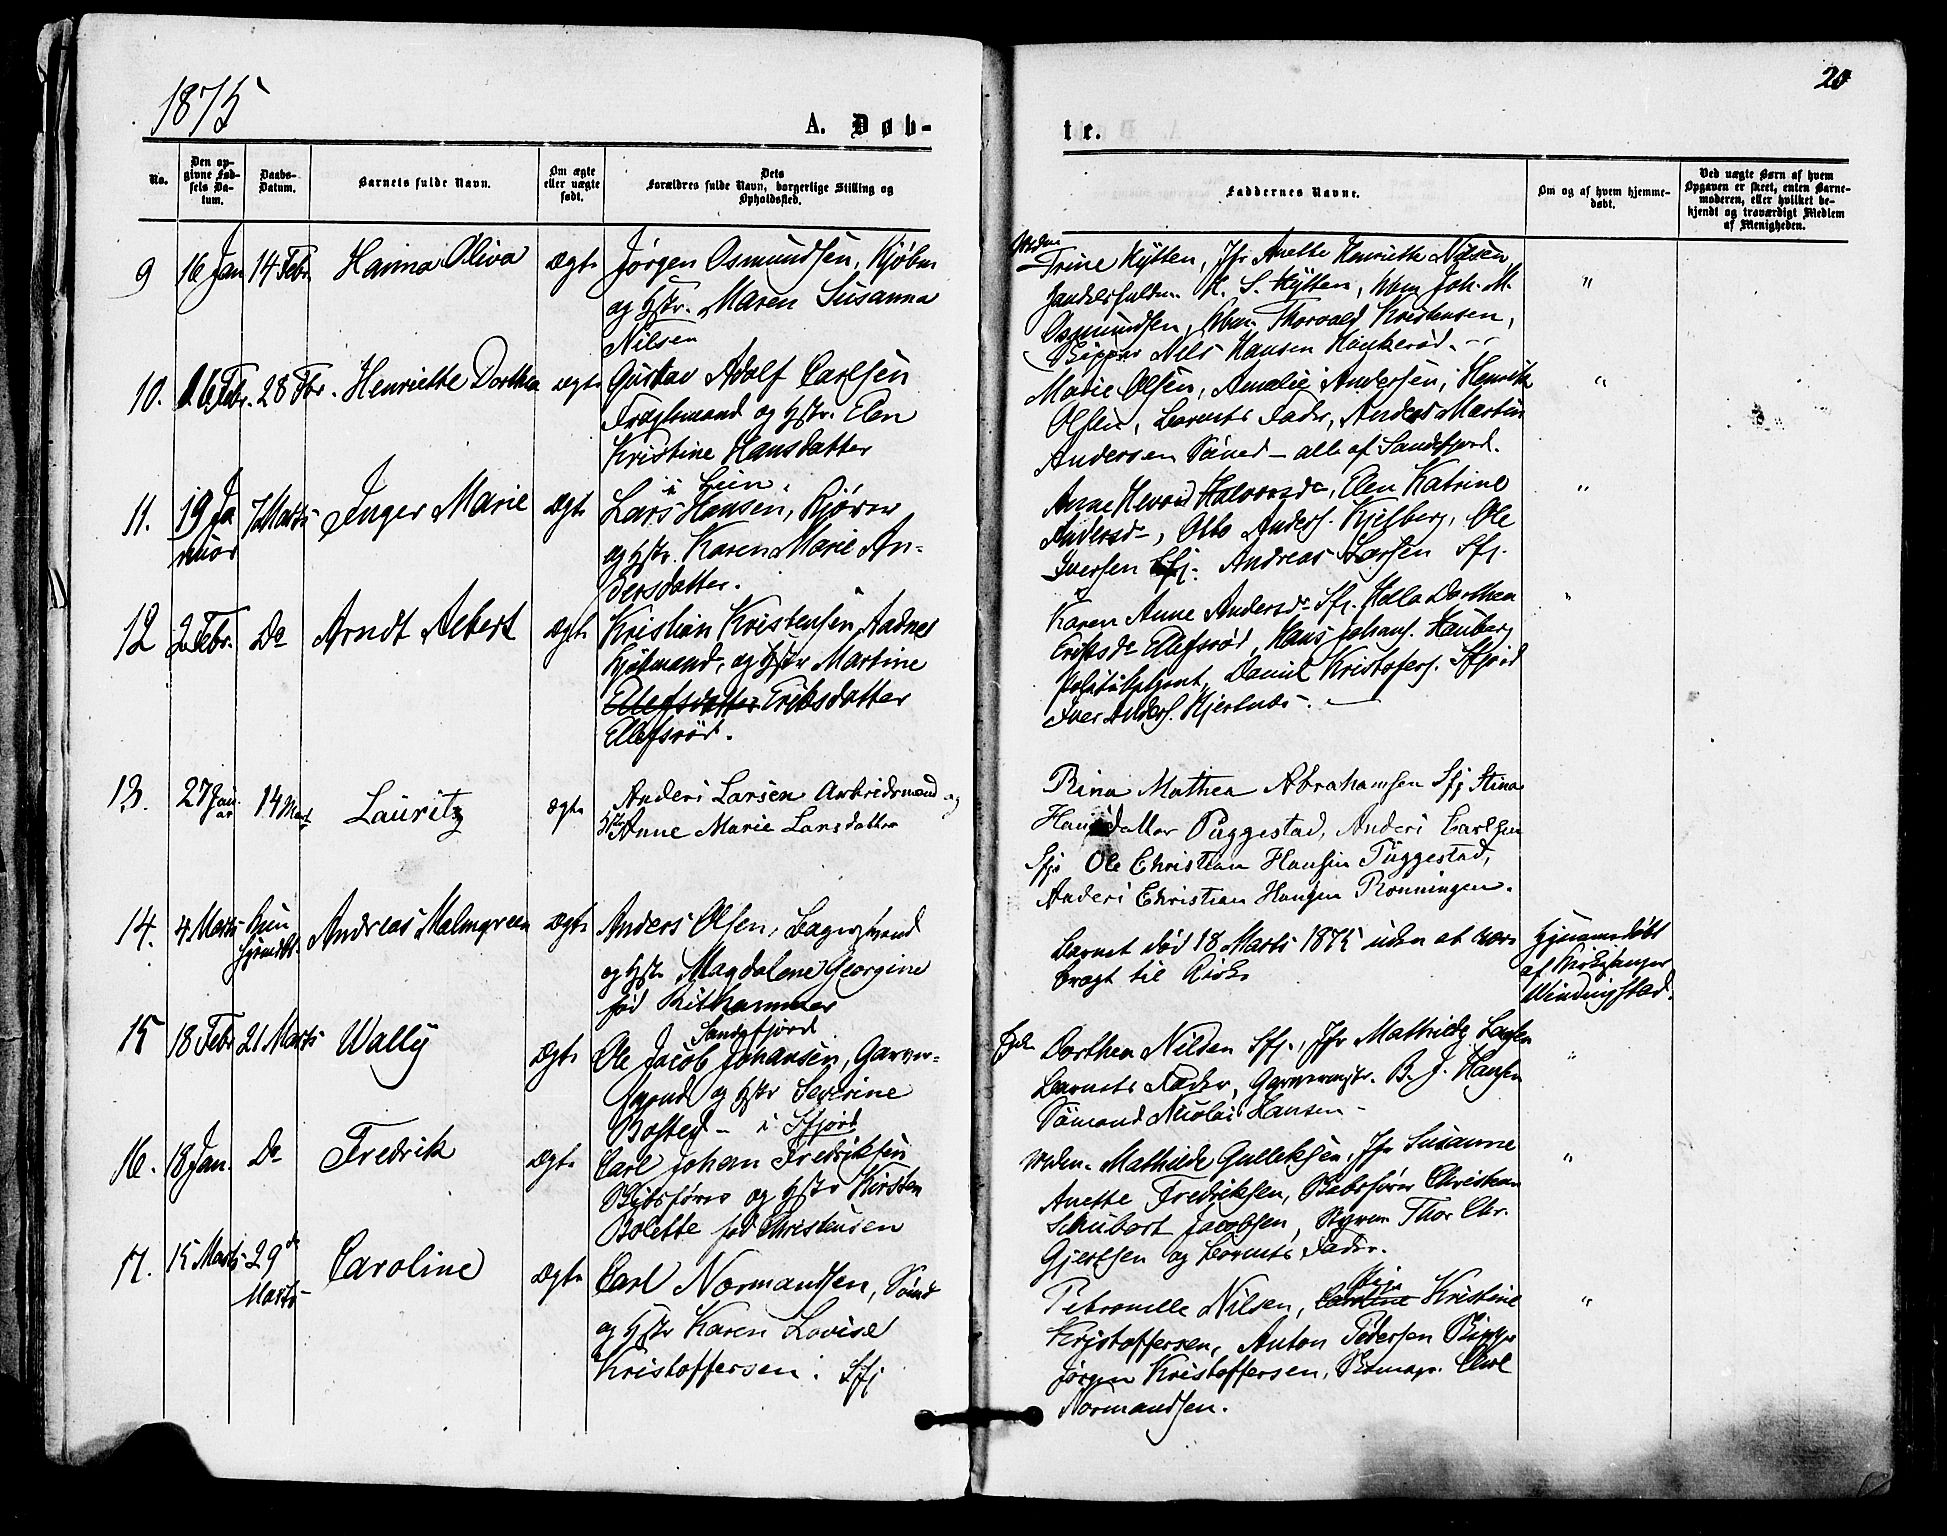 1875
20
A. Døb-
te.
No.
Den op-
givne Fød-
sels Da-
tum.
Daabs-
Datum.
Barnets fulde Navn.
Om ægte
eller uægte
født.
Dets
Forældres fulde Navn, borgerlige Stilling og
Opholdssted.
Faddernes Navne.
Om og af hvem hjemme-
døbt.
Ved uægte Børn af hvem
Opgaven er skeet, enten Barne-
moderen, eller hvilket be-
kjendt og troværdigt Medlem
af Menigheden.
9 16 Jan 14 Febr Hanna Oliva ægte
Jørgen Osmundsen, Kjøbm
og Hstr. Maren Susanna
Nilsen
Trine Hytten, Jfr Anette Henriette Nilsen,
S. Hytten, Joh. M.
Osmundsen, Thorvald Kristensen,
Nils Hansen Haukerød.
"
10. 16 Febr. 28 Fbr. Henriette Dorthea ægte
Gustav Adolf Carlsen
Fragtemand og Hstr. Elen
Kristine Hansdatter
Marie Olsen, Amalie Andersen, Henrik
Olsen, Barnets Fader, Anders Martin
Andersen Sømd - alle af Sandefjord.
"
11. 19 Ja
nuar
7 Marts Inger Marie ægte
i Lien.
Lars Hansen, Kjører
og Hstr. Karen Marie An-
dersdatter.
Anne Halvorsdr, Elen Katrine
Andersdr, Otto Anders. Kjelberg, Ole
Iversen Sfj. Andreas Larsen Sfj.
"
12 2 Febr. Do Arndt Albert ægte
Kristian Kristensen Aadnes
og Hstr Martine
Ellefsdatter Eriksdatter
Ellefsrød.
Karen Anne Andersdr Sfj. Helle Dorthea
Eriksdr Ellefsrød, Hans Johans. Hauberg
Politibetjent, Daniel Kristofers. Sfjord
Iver Anders. Kjerlnæs.
"
13. 27 Janu
ar
14 Mart Lauritz ægte
Anders Larsen Arbeidsmand og
Hstr Anne Marie Larsdatter
Rina Mathea Abrahamsen Sfj Stina
Hansdatter Puggestad, Anders Carlsen
Sfj. Ole Christian Hansen Puggestad,
Anders Christian Hansen Rønningen.
14. 4 Marts Kun
hjemdbt.
Andreas Malmgreen ægte
Anders Olsen, Bagersvend
og Hstr Magdalene Georgine
fød Rithammer
Sandefjord
Barnet død 18 Marts 1875 uden at være
bragt til Kirke
Hjemmedøbt
af Kirkesanger
Windingstad.
15 18 Febr 21 Marts Wally ægte
Ole Jacob Johansen, Garver-
svend og Hstr Severine
Bosted - i Sfjord
Dorthea Nilsen Sfj., Jfr Mathilde
Barnets Fader, Garvermstr. B. J. Hansen
Sømand Nicolai Hansen -
"
16. 18 Jan. Do Fredrik ægte
Carl Johan Fredriksen
Skibsfører og Hstr Kirsten
Bolette fød Christensen
Mathilde Gulliksen, Jfr Susanne
Anette Fredriksen, Skibsfører Christian
Schubart Jacobsen, Styrm Thor Chr.
Gjertsen og Barnets Fader.
"
17. 15 Marts 29de
Marts
Caroline ægte
Carl Normandsen, Sømd
og Hstr Karen Lovise
Kristoffersen. Sfj
Petronelle Nilsen, Caroline Kristine
Kristoffersen, Anton Pedersen
Jørgen Kristoffersen, Carl
Normandsen.
"